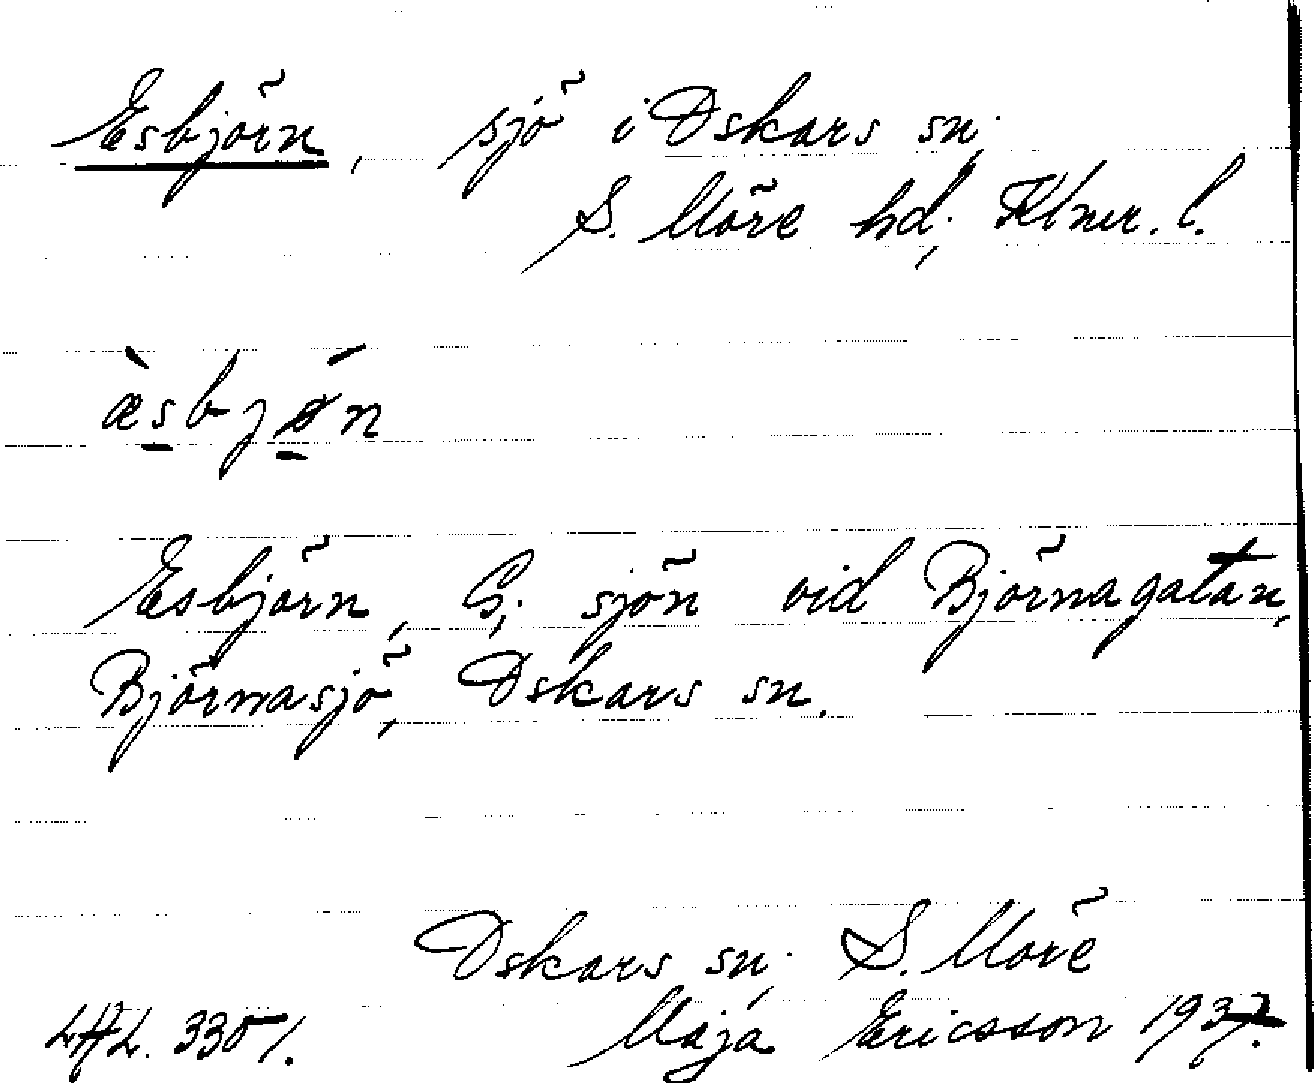 Esbjörn, sjö i Oskars sn.
S. Möre hd; Klmr. l.
æsbjøn
Esbjörn, G; sjön vid Björnagatan,
Björnasjö, Oskars sn.
Oskars sn; S. Möre
LAL. 3351. Maja Ericsson 1937.